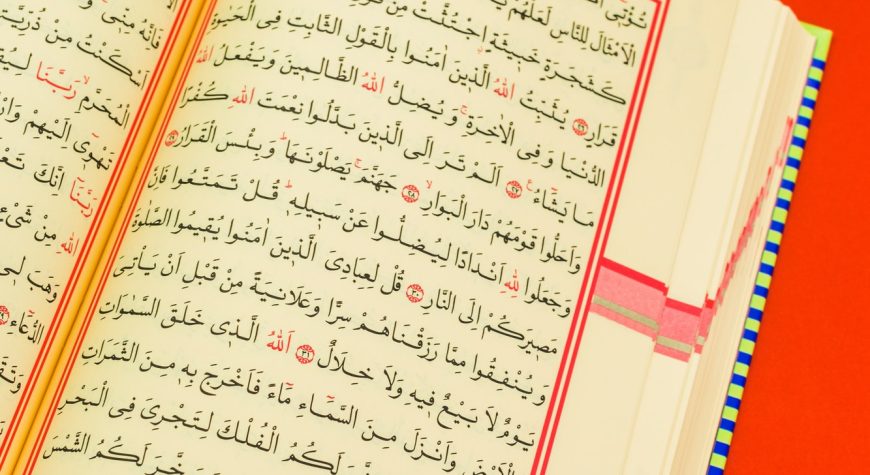 تُؤْتٖٓى
الْاَمْثَالَ لِلنَّاسِ لَعَلَّهُمْ
كَشَجَرَةٍ خَبٖيثَةٍ اجْتُثَّتْ مِنْ
قَرَارٍ ٢٦ يُثَبِّتُ اللّٰهُ الَّذٖينَ اٰمَنُوا بِالْقَوْلِ الثَّابِتِ فِى الْحَيٰوةِ
الدُّنْيَا وَفِى الْاٰخِرَةِۚ وَيُضِلُّ اللّٰهُ الظَّالِمٖينَ وَيَفْعَلُ اللّٰهُ
مَا يَشَٓاءُ ٢٧ اَلَمْ تَرَ اِلَى الَّذٖينَ بَدَّلُوا نِعْمَتَ اللّٰهِ كُفْرًا
وَاَحَلُّوا قَوْمَهُمْ دَارَ الْبَوَارِۙ ٢٨ جَهَنَّمَۚ يَصْلَوْنَهَاؕ وَبِئْسَ الْقَرَارُ ٢٩
وَجَعَلُوا لِلّٰهِ اَنْدَادًا لِيُضِلُّوا عَنْ سَبٖيلِهٖؕ قُلْ تَمَتَّعُوا فَاِنَّ
مَصٖيرَكُمْ اِلَى النَّارِ ٣٠ قُلْ لِعِبَادِىَ الَّذٖينَ اٰمَنُوا يُقٖيمُوا الصَّلٰوةَ
وَيُنْفِقُوا مِمَّا رَزَقْنَاهُمْ سِرًّا وَعَلَانِيَةً مِنْ قَبْلِ اَنْ يَاْتِىَ
يَوْمٌ لَا بَيْعٌ فٖيهِ وَلَا خِلَالٌ ٣١ اَللّٰهُ الَّذٖى خَلَقَ السَّمٰوَاتِ
وَاَنْزَلَ مِنَ السَّمَٓاءِ مَٓاءً فَاَخْرَجَ بِهٖ مِنَ الثَّمَرَاتِ
لَكُمُ الْفُلْكَ لِتَجْرِىَ فِى الْبَحْرِ
لَكُمُ الشَّمْسَ
فَاِنَّهُ مِنّٖى
اَسْكَنْتُ مِنْ ذُرِّيَّ
الْمُحَرَّمِۙ رَبَّنَا لِيُقٖ
تَهْوٖٓى اِلَيْهِمْ وَارْ
رَبَّنَٓا اِنَّكَ تَعْ
اللّٰهِ مِنْ شَىْءٍ
وَهَبَ لٖى
الدُّعَٓاءِ ٣٩